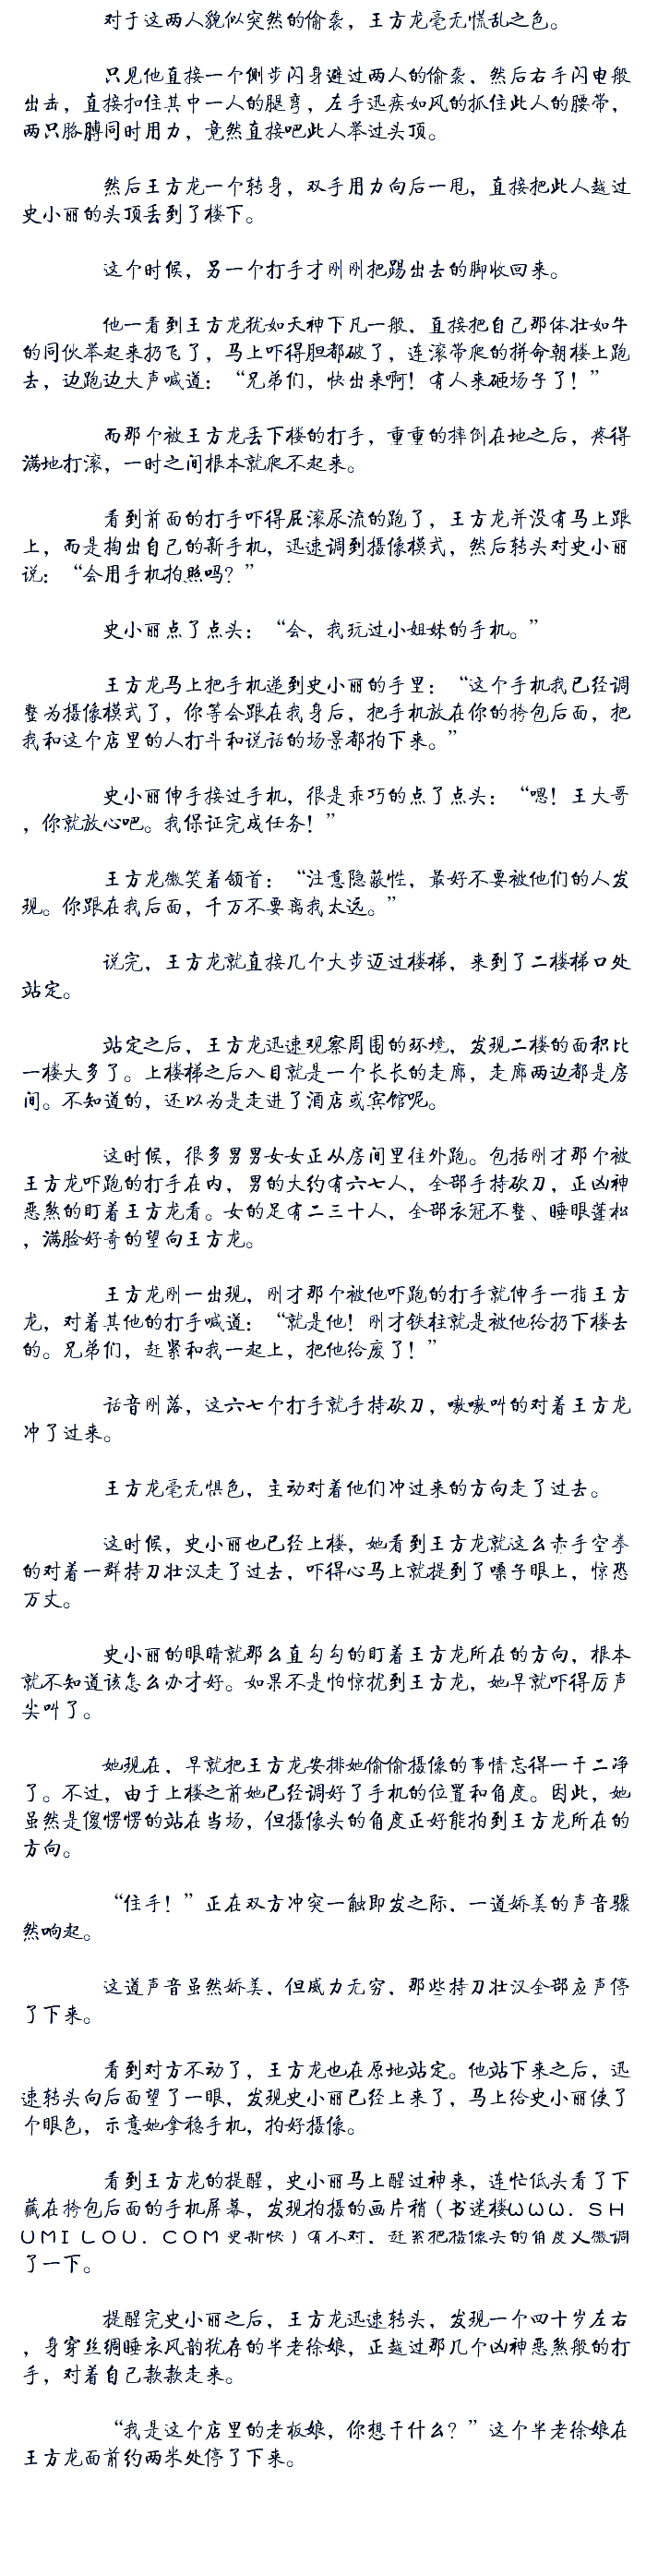 对于这两人貌似突然的偷袭，王方龙毫无慌乱之色。
只见他直接一个侧步闪身避过两人的偷袭，然后右手闪电般
出击，直接扣住其中一人的腿弯，左手迅疾如风的抓住此人的腰带，
两只胳膊同时用力，竟然直接吧此人举过头顶。
然后王方龙一个转身，双手用力向后一甩，直接把此人越过
史小丽的头顶丢到了楼下。
这个时候，另一个打手才刚刚把踢出去的脚收回来。
他一看到王方龙犹如天神下凡一般，直接把自己那体壮如牛
的同伙举起来扔飞了，马上吓得胆都破了，连滚带爬的拼命朝楼上跑
去，边跑边大声喊道：“兄弟们，快出来啊！有人来砸场子了！”
而那个被王方龙丢下楼的打手，重重的摔倒在地之后，疼得
满地打滚，一时之间根本就爬不起来。
看到前面的打手吓得屁滚尿流的跑了，王方龙并没有马上跟
上，而是掏出自己的新手机，迅速调到摄像模式，然后转头对史小丽
说：“会用手机拍照吗？”
史小丽点了点头：“会，我玩过小姐妹的手机。”
王方龙马上把手机递到史小丽的手里：“这个手机我已经调
整为摄像模式了，你等会跟在我身后，把手机放在你的挎包后面，把
我和这个店里的人打斗和说话的场景都拍下来。”
史小丽伸手接过手机，很是乖巧的点了点头：“嗯！王大哥
，你就放心吧。我保证完成任务！”
王方龙微笑着颔首：“注意隐蔽性，最好不要被他们的人发
现。你跟在我后面，千万不要离我太远。”
说完，王方龙就直接几个大步迈过楼梯，来到了二楼梯口处
站定。
站定之后，王方龙迅速观察周围的环境，发现二楼的面积比
一楼大多了。上楼梯之后入目就是一个长长的走廊，走廊两边都是房
间。不知道的，还以为是走进了酒店或宾馆呢。
这时候，很多男男女女正从房间里往外跑。包括刚才那个被
王方龙吓跑的打手在内，男的大约有六七人，全部手持砍刀，正凶神
恶煞的盯着王方龙看。女的足有二三十人，全部衣冠不整、睡眼蓬松
，满脸好奇的望向王方龙。
王方龙刚一出现，刚才那个被他吓跑的打手就伸手一指王方
龙，对着其他的打手喊道：“就是他！刚才铁柱就是被他给扔下楼去
的。兄弟们，赶紧和我一起上，把他给废了！”
话音刚落，这六七个打手就手持砍刀，嗷嗷叫的对着王方龙
冲了过来。
王方龙毫无惧色，主动对着他们冲过来的方向走了过去。
这时候，史小丽也已经上楼，她看到王方龙就这么赤手空拳
的对着一群持刀壮汉走了过去，吓得心马上就提到了嗓子眼上，惊恐
万丈。
史小丽的眼睛就那么直勾勾的盯着王方龙所在的方向，根本
就不知道该怎么办才好。如果不是怕惊扰到王方龙，她早就吓得厉声
尖叫了。
她现在，早就把王方龙安排她偷偷摄像的事情忘得一干二净
了。不过，由于上楼之前她已经调好了手机的位置和角度。因此，她
虽然是傻愣愣的站在当场，但摄像头的角度正好能拍到王方龙所在的
方向。
“住手！”正在双方冲突一触即发之际，一道娇美的声音骤
然响起。
这道声音虽然娇美，但威力无穷，那些持刀壮汉全部应声停
了下来。
看到对方不动了，王方龙也在原地站定。他站下来之后，迅
速转头向后面望了一眼，发现史小丽已经上来了，马上给史小丽使了
个眼色，示意她拿稳手机，拍好摄像。
看到王方龙的提醒，史小丽马上醒过神来，连忙低头看了下
藏在挎包后面的手机屏幕，发现拍摄的画片稍（书迷楼ＷＷＷ．ＳＨ
ＵＭＩＬＯＵ．ＣＯＭ更新快）有不对，赶紧把摄像头的角度又微调
了一下。
提醒完史小丽之后，王方龙迅速转头，发现一个四十岁左右
，身穿丝绸睡衣风韵犹存的半老徐娘，正越过那几个凶神恶煞般的打
手，对着自己款款走来。
“我是这个店里的老板娘，你想干什么？”这个半老徐娘在
王方龙面前约两米处停了下来。